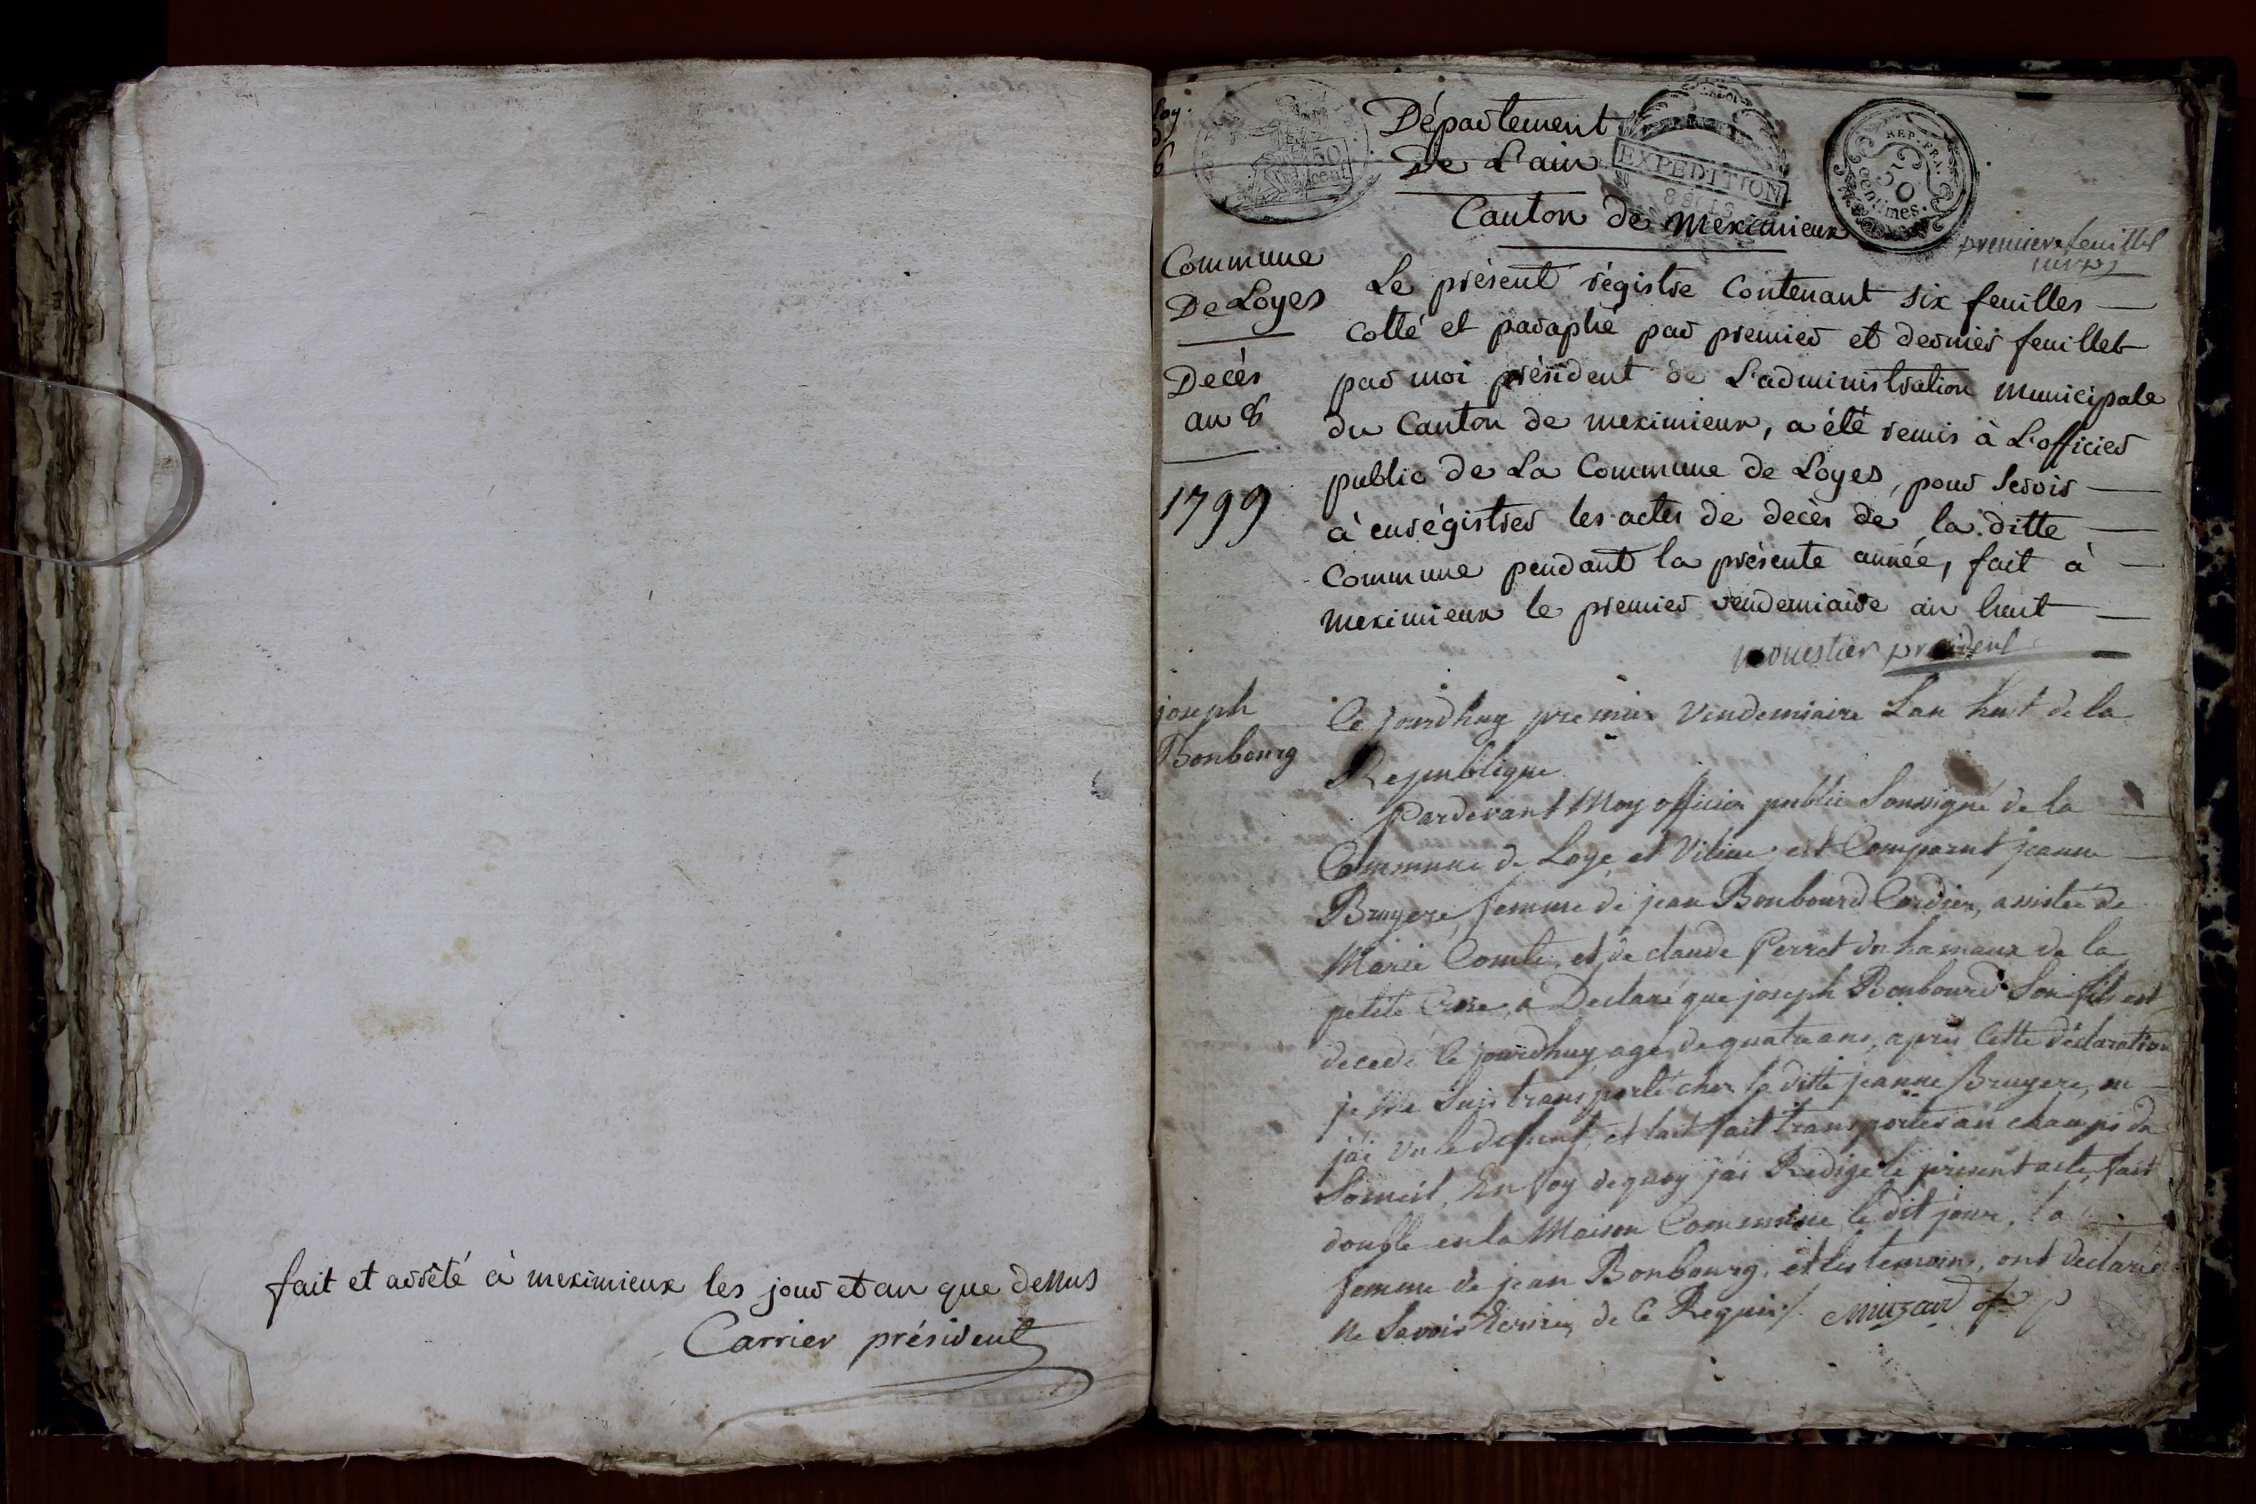 fait et arrêté à meximieux les jour et an que dessus
Carrier président
Loy.
D
6
50
cent.
Département
De L'ain
EXPEDITION
REP. FRA.
50
centimes.
Canton de meximieux
premier feuillet
Commune
De Loyes
Decès
an 8
1799
Le présent régistre contenant six feuilles
cotté et paraphé par premier et dernier feuillet
par moi président de L'administration municipale
du Canton de meximieux, a été remis à L'officier
public de La Commune de Loyes, pour Servir
à enrégistrer les actes de decès de la ditte
Commune pendant la présente année, fait à
meximieux le premier vendemiaire an huit
monestier president
joseph
Bonbourg
Ce jourdhuy premier Vendemiaire Lan huit de la
Republique
Pardevant Moy officier public Soussigné de la
Commune de Loye et Vilieu est Comparut jeanne
Bruyere, femme de jean Bonbourd Cordier, assistée de
Marie Comte, et de claude Perret du hamaux de la
petite Croze, a Declaré que joseph Bonbourd Son fils est
decedé Ce jourdhuy, agé de quatre ans, après Cette déclaration
je me Suis transporté chez la ditte jeanne Bruyere, ou
j'ai vu le defunt, et l'ait fait transporter au champs du
Someil, En foy de quoy j'ai Redigé le present acte, fait
double en la Maison Commune le dit jour, la
femme de jean Bonbourg, et les temoins, ont declaré
ne Savoir Ecrire, de Ce Requis/. Muzard of p